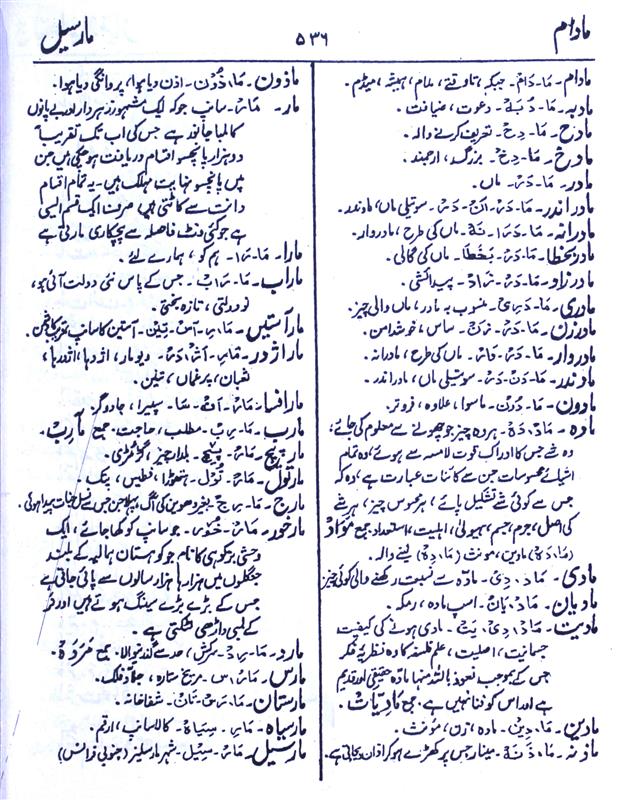 مادام
۵۳۶
مارسیل
مادام۔ مَا۔ دَامْ۔ جبکہ، تاوقتے، مدام، ہمیشہ، میڈم۔
مادبہ۔ مَا۔ دُبَۃ۔ دعوت، ضیافت۔
مادح۔ مَا۔ دِحْ۔ تعریف کرنے والہ۔
مادخ۔ مَا۔ دِخْ۔ بزرگ، ارجمند۔
مادر۔ مَا۔ دَرْ۔ ماں۔
مادر اندر۔ مَا۔ دَرْ۔ اَنْ۔ دَرْ۔ سوتیلی ماں، مادندر۔
مادرانہ۔ مَا۔ دَرَا۔ نَۃ۔ ماں کی طرح، مادروار۔
مادر بخطا۔ مَا۔ دَرْ۔ بَخَطَا۔ ماں کی گالی۔
مادر زاد۔ مَا۔ دَرْ۔ زَادْ۔ پیدائشی۔
مادری۔ مَا۔ دَرِیْ۔ منسوب بہ مادر، ماں والی چیز۔
مادرزن۔ مَا۔ دَرْ۔ زَنْ۔ ساس، خوشدامن۔
مادروار۔ مَا۔ دَرْ۔ وَارْ۔ ماں کی طرح، مادرانہ۔
مادندر۔ مَا۔ دَنْ۔ دَرْ۔ سوتیلی ماں، مادراندر۔
مادون۔ مَا۔ دُوْنْ۔ ماسوا، علاوہ، فروتر۔
مادہ۔ مَادْ۔ دَہْ۔ ہر وہ چیز جو چھونے سے معلوم کی جائے،
وہ شے جس کا ادراک قوت لامسہ سے ہوئے، وہ تمام
اشیائے محسوسات جن سے کائنات عبارت ہے، وہ کہ
جس سے کوئی شے تشکیل پائے، ہر محسوس چیز، ہر شے
کی اصل، جرم، جسم، ہیولیٰ، اہلیت، استعداد۔ جمع مَوَادْ
(مَا۔ دَہْ) مادین، مونث (مَا۔ دِہْ) لینے والہ۔
مادی۔ مَادْ۔ دِیْ۔ مادّہ سے نسبت رکھنے والی کوئی چیز
مادیان۔ مَادْ۔ یَانْ۔ اسپ مادہ، رمکہ۔
مادیت۔ مَادْ۔ دِیْ۔ یَتْ۔ مادی ہونے کی کیفیت
جسمانیت، اصلیت، علم فلسفہ کا وہ نظریہ فکر
جس کے بموجب نعوذ باللہ منہا مادہ حقیقی اور قدیم
ہے اور اس کو فنا نہیں ہے۔ جمع مَادِیَّاتْ۔
مادین۔ مَا۔ دِیْنْ۔ مادہ، زن، مؤنث۔
ماذنہ۔ مَا۔ ذَنَۃ۔ مینار جس پر کھڑے ہو کر اذان دیجاتی ہے۔
ماذون۔ مَا۔ ذُوْنْ۔ اذن دیا ہوا، پروانگی دیا ہوا۔
مار۔ مَارْ۔ سانپ جو کہ ایک مشہور زہردار اور بے پاؤں
کا لمبا جانور ہے جس کی اب تک تقریباً
دو ہزار پانچسو اقسام دریافت ہو چکی ہیں جن
میں پانچسو نہایت مہلک ہیں۔ یہ تمام اقسام
دانت سے کاٹتی ہیں صرف ایک قسم ایسی
ہے جو کئی فٹ فاصلہ سے پچکاری مارتی ہے
مارا۔ مَا۔ رَا۔ ہم کو، ہمارے لئے۔
ماراب۔ مَا۔ رَابْ۔ جس کے پاس نئی دولت آئی ہو،
نودولتی، تازہ بختی۔
مار آستیں۔ مَارِ۔ آسْ۔ تِیْں۔ آستین کا سانپ،
مار اژدر۔ مَارِ۔ اَژْ۔ دَرْ۔ دیومار، اژدہا، اژدرہا،
ثعبان، پرغمان، تنین۔
مارافسا۔ مَارْ۔ اَفْ۔ سَا۔ سپیرا، جادوگر۔
مارب۔ مَا۔ رِبْ۔ مطلب، حاجت۔ جمع مَآرِبْ۔
مار پیچ۔ مَارْ۔ پِیْچْ۔ بلدار چیز،
مارتول۔ مَارْ۔ تُوْلْ۔ ہتھوڑا، فطیس، پتک۔
مارج۔ مَا۔ رِجْ۔ بغیر دھوئیں کی آگ، پہلا جن جس سے نسل جنات پیدا ہوئی۔
مارخور۔ مَارْ۔ خُوْرْ۔ جو سانپ کو کھا جائے، ایک
وحشی بز کوہی کا نام جو کوہستان ہمالیہ کے بلند
جنگلوں میں ہزارہا ہزار سالوں سے پائی جاتی ہے
جس کے بڑے بڑے سینگ ہوتے ہیں اور نر
کے لمبی داڑھی لٹکتی ہے۔
مارد۔ مَا۔ رِدْ۔ سرکش، حد سے گذرنیوالا۔ جمع مَرَدَۃْ۔
مارس۔ مَارْسْ۔ مریخ ستارہ، جلاد فلک۔
مارستان۔ مَا۔ رِسْ۔ تَانْ۔ شفاخانہ۔
مارسیاہ۔ مَارِ۔ سِیَاہْ۔ کالا سانپ، ارقم۔
مارسیل۔ مَارْ۔ سِیْلْ۔ شہر مارسلیز (جنوبی فرانس)